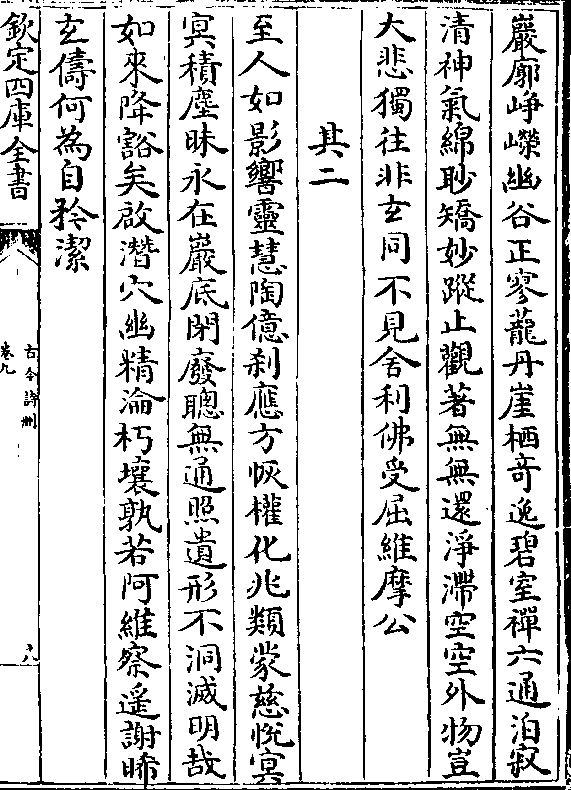 巖廓崢嶸幽谷正寥蘢丹崖栖竒逸碧室禪六通泊寂
清神氣綿眇矯妙蹤止觀著無無還淨滯空空外物豈
大悲獨往非玄同不見舍利佛受屈維摩公
其二
至人如影響靈慧陶億刹應方恢權化兆類蒙慈悅冥
冥積塵昧永在巖底閉廢聰無通照遺形不洞滅明哉
如來降豁矣啟潛穴幽精淪朽壤孰若阿維察遥謝晞
玄儔何為自矜潔
欽定四庫全書
古今詩刪
卷九
八